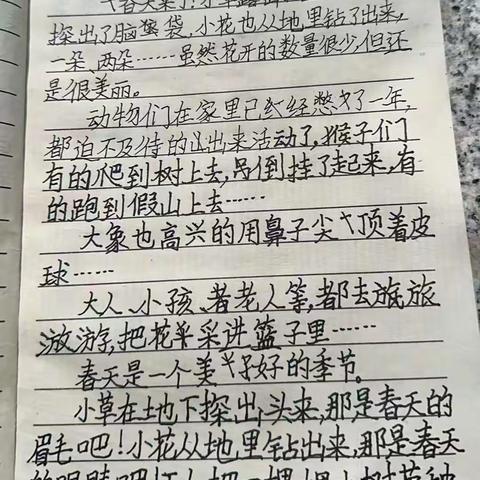 春天来了!小草露出
探出了脑袋,小花也从地里钻了出来,
一朵,两朵……虽然花开的数量很少,但还
是很美丽。
动物们在家里已经憋了一年,
都迫不及待的出来活动了,猴子们
有的爬到树上去,吊倒挂了起来,有
的跑到假山上去……
大象也高兴的用鼻子尖顶着皮
球……
大人、小孩、老人等,都去旅旅
游游,把花采进篮子里……
春天是一个美好的季节。
小草在地下探出头来,那是春天的
眉毛吧!小花从地里钻出来,那是春天
的眼睛吧